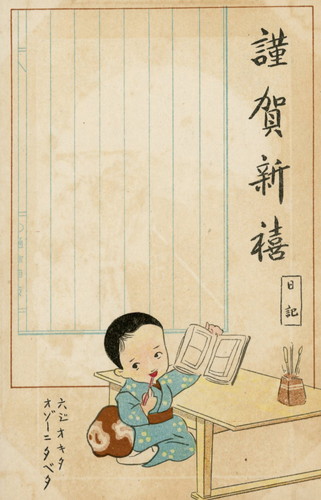 謹賀新禧
日記
六ジオキタ
オゾーニタベタ